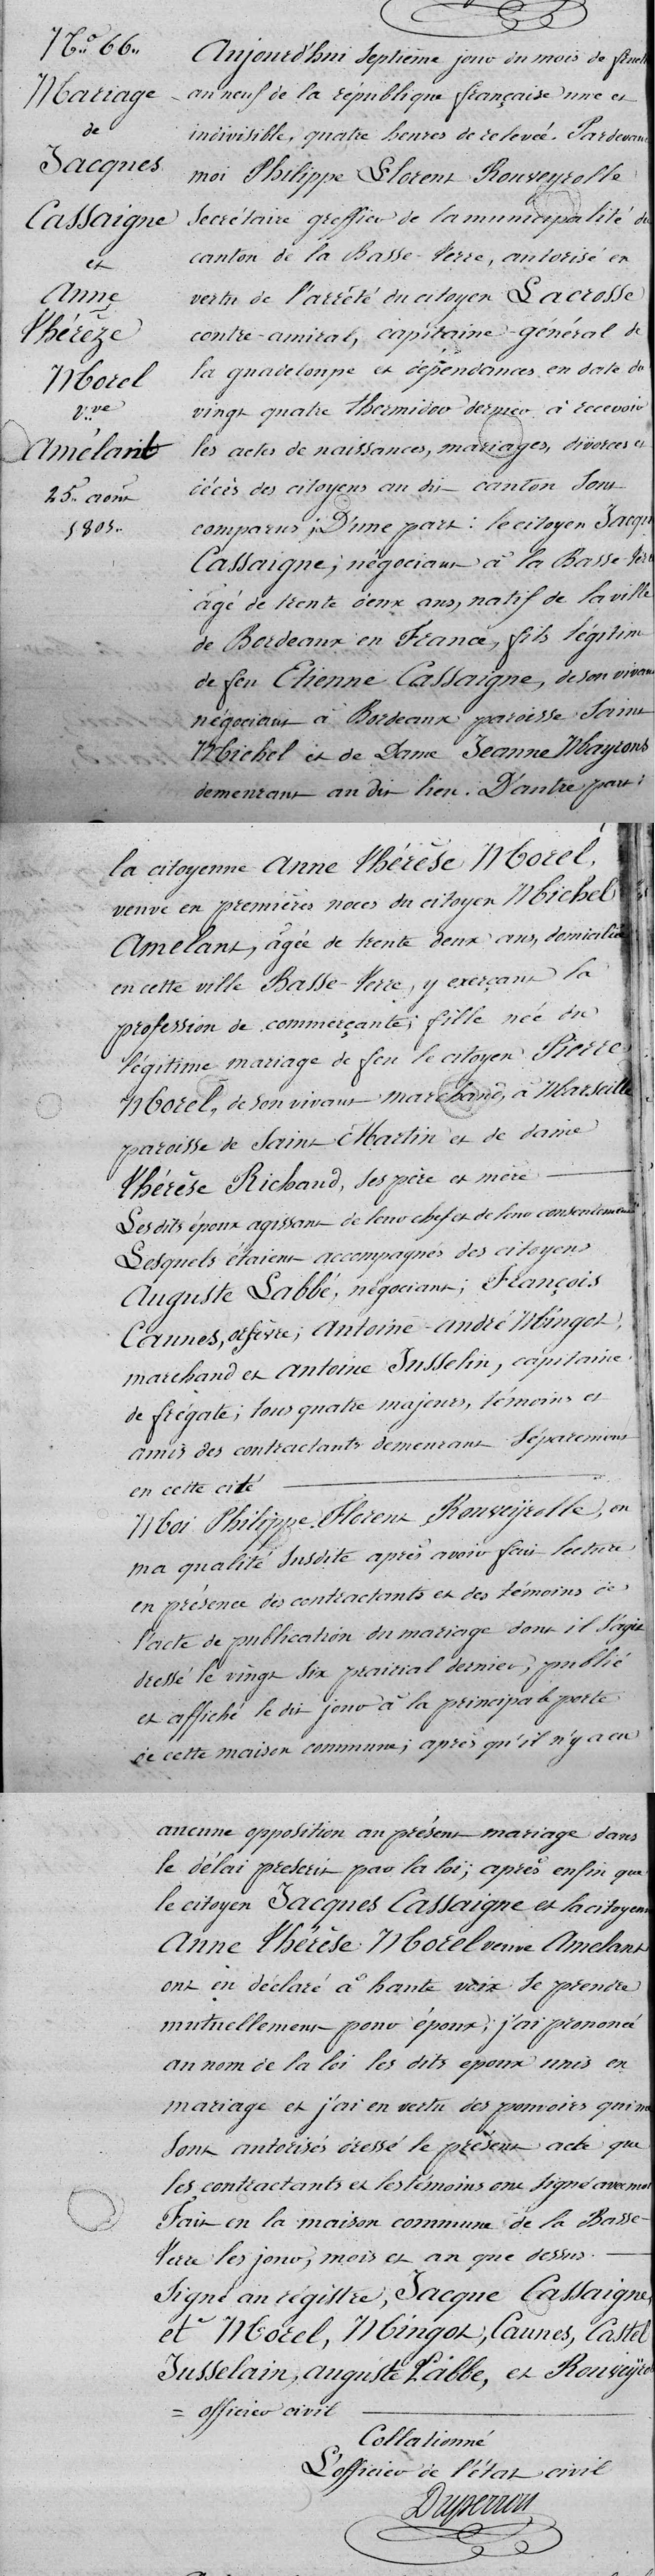 N.º 66.
Mariage
de
Jacques
Cassaigne
et
Anne
Thérèze
Morel
v.ve
Amélant
25. aout
1801.
Aujourd'hui Septième jour du mois de
an neuf de la république française une et
indivisible, quatre heures de relevée. Pardevant
moi Philippe Florent Rouveyrolle
Secrétaire greffier de la municipalité du
canton de la Basse-Terre, autorisé en
vertu de l'arrêté du citoyen Lacrosse
contre-amiral, capitaine-général de
la guadeloupe et dépendances en date du
vingt quatre thermidor dernier à recevoir
les actes de naissances, mariages, divorces et
décès des citoyens au dit canton Sont
comparus; D'une part: le citoyen Jacques
Cassaigne; négociant à la Basse-Terre
âgé de trente deux ans, natif de la ville
de Bordeaux en France, fils légitime
de feu Etienne Cassaigne, de son vivant
négociant à Bordeaux paroisse Saint
Michel et de Dame Jeanne Mayrons
demeurant au dit lieu. D'autre part:
la citoyenne Anne Thérèse Morel,
veuve en premières noces du citoyen Michel
Amelant, âgée de trente deux ans, domiciliée
en cette ville Basse-Terre, y exerçant la
profession de commerçante; fille née du
légitime mariage de feu le citoyen Pierre
Morel, de son vivant marchand, à Marseille
paroisse de Saint Martin et de dame
Thérèse Richaud, ses père et mère
Les dits époux agissant de leur chef et de leur consentement
Lesquels étaient accompagnés des citoyens
Auguste Labbé, négociant; François
Caunes, orfèvre; Antoine-andré Mingot,
marchand et Antoine Jusselin, capitaine
de frégate; tous quatre majeurs, témoins et
amis des contractants demeurant Séparément
en cette cité
Moi Philippe Florent Rouveyrolle, en
ma qualité Susdite après avoir fait lecture
en présence des contractants et des témoins de
l'acte de publication du mariage dont il s'agit
dressé le vingt six prairial dernier, publié
et affiché le dit jour à la principale porte
de cette maison commune; après qu'il n'y a eu
aucune opposition au présent mariage dans
le délai prescrit par la loi; après enfin que
le citoyen Jacques Cassaigne et la citoyenne
Anne Thérèse Morel veuve Amelant
ont eu déclaré à haute voix Se prendre
mutuellement pour époux; j'ai prononcé
au nom de la loi les dits epoux unis en
mariage et j'ai en vertu des pouvoirs qui me
Sont autorisés dressé le présent acte que
les contractants et les témoins ont Signé avec moi
Fait en la maison commune de la Basse-
Terre les jour, mois et an que dessus.
Signé au régistre, Jacque Cassaigne,
et Morel, Mingot, Caunes, Castel
Jusselain, auguste Labbe, et Rouveyro
= officier civil
Collationné
L'officier de l'état civil
Duperron